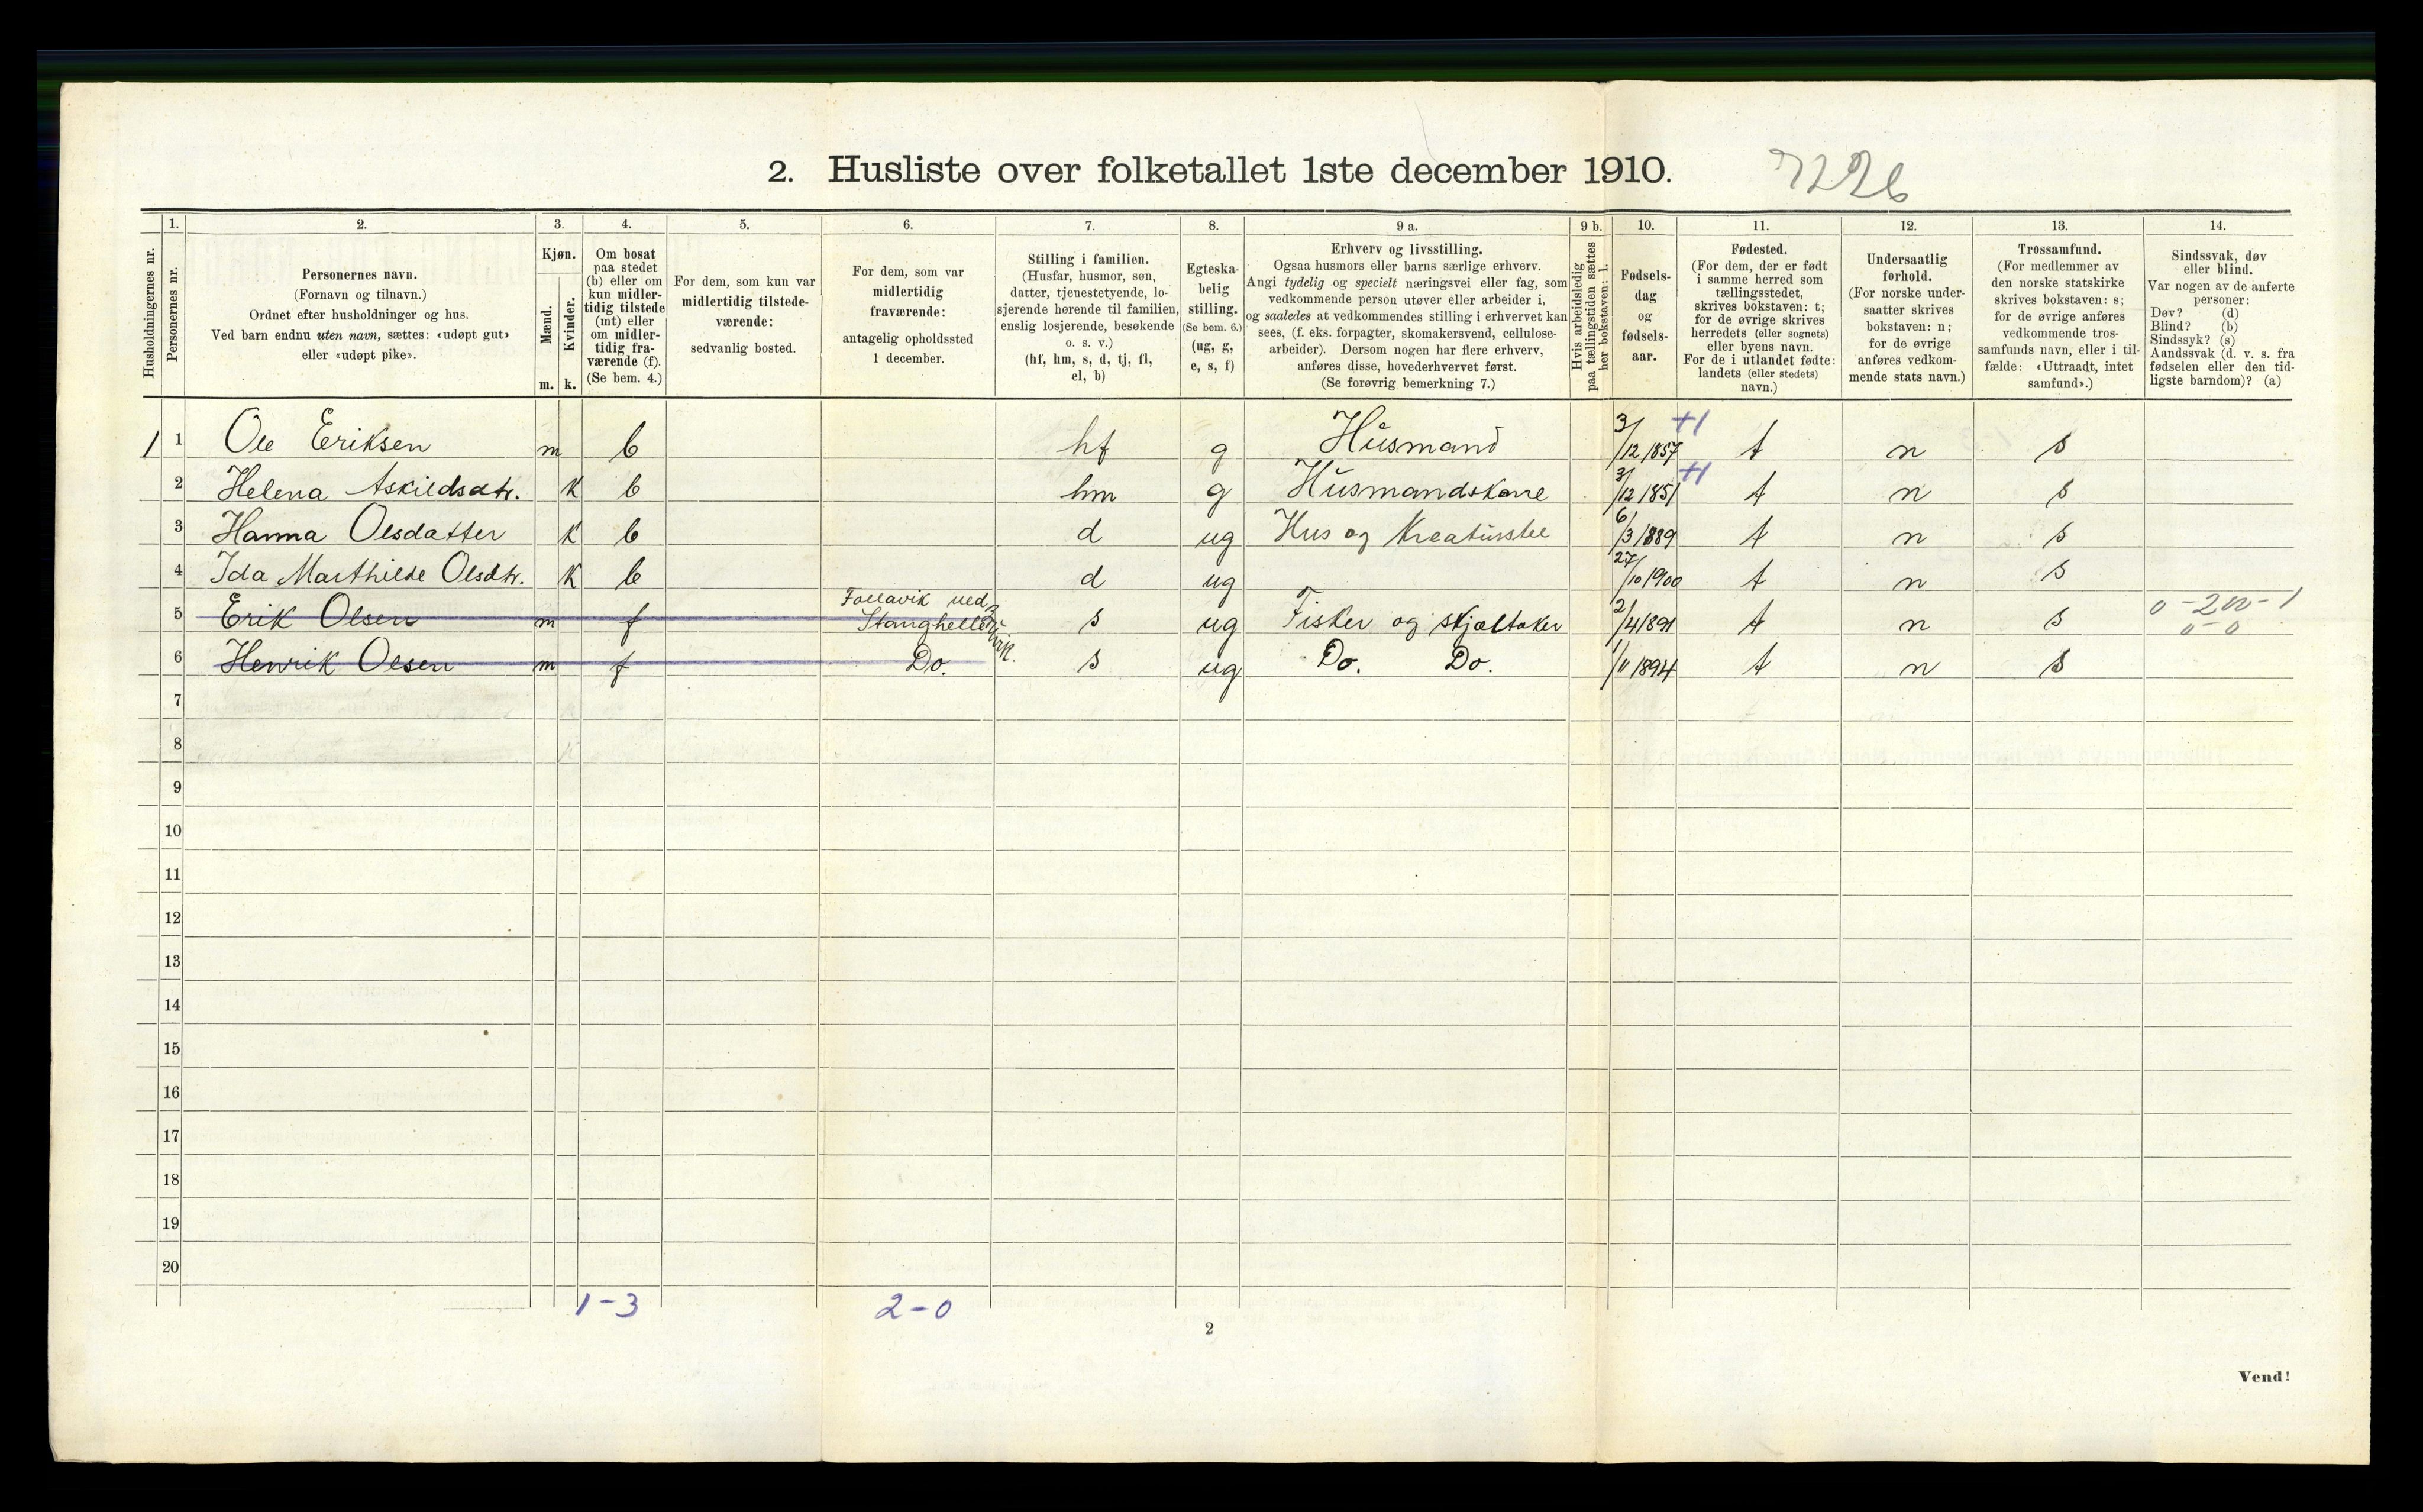 2. Husliste over folketallet 1ste december 1910.
7226
1. 2. 3. 4. 5. 6. 7. 8. 9 a. 9 b. 10. 11. 12. 13. 14.
Husholdningernes nr.
Personernes nr.
Personernes navn.
(Fornavn og tilnavn.)
Ordnet efter husholdninger og hus.
Ved barn endnu uten navn, sættes: «udøpt gut»
eller «udøpt pike».
Kjøn.
Mænd.
Kvinder.
m. k.
Om bosat
paa stedet
(b) eller om
kun midler-
tidig tilstede
(mt) eller
om midler-
tidig fra-
værende (f).
(Se bem. 4.)
For dem, som kun var
midlertidig tilstede-
værende:
sedvanlig bosted.
For dem, som var
midlertidig
fraværende:
antagelig opholdssted
1 december.
Stilling i familien.
(Husfar, husmor, søn,
datter, tjenestetyende, lo-
sjerende hørende til familien,
enslig losjerende, besøkende
o. s. v.)
(hf, hm, s, d, tj, fl,
el, b)
Egteska-
belig
stilling.
(Se bem. 6.)
(ug, g,
e, s, f)
Erhverv og livsstilling.
Ogsaa husmors eller barns særlige erhverv.
Angi tydelig og specielt næringsvei eller fag, som
vedkommende person utøver eller arbeider i,
og saaledes at vedkommendes stilling i erhvervet kan
sees, (f. eks. forpagter, skomakersvend, cellulose-
arbeider). Dersom nogen har flere erhverv,
anføres disse, hovederhvervet først.
(Se forøvrig bemerkning 7.)
Hvis arbeidsledig
paa tællingstiden sættes
her bokstaven: l.
Fødsels-
dag
og
fødsels-
aar.
Fødested.
(For dem, der er født
i samme herred som
tællingsstedet,
skrives bokstaven: t;
for de øvrige skrives
herredets (eller sognets)
eller byens navn.
For de i utlandet fødte:
landets (eller stedets)
navn.)
Undersaatlig
forhold.
(For norske under-
saatter skrives
bokstaven: n;
for de øvrige
anføres vedkom-
mende stats navn.)
Trossamfund.
(For medlemmer av
den norske statskirke
skrives bokstaven: s;
for de øvrige anføres
vedkommende tros-
samfunds navn, eller i til-
fælde: «Uttraadt, intet
samfund».)
Sindssvak, døv
eller blind.
Var nogen av de anførte
personer:
Døv? (d)
Blind? (b)
Sindssyk? (s)
Aandssvak (d. v. s. fra
fødselen eller den tid-
ligste barndom)? (a)
1 1 Ole Eriksen m b hf g Husmand 3/12 1857 +1 t n s
2 Helena Askildsdtr. k b hm g Husmandskone 3/12 1851 +1 t n s
3 Hanna Olsdatter k b d ug Hus og Kreaturstel 6/3 1889 t n s
4 Ida Marthilde Olsdtr. k b d ug 27/10 1900 t n s
5 Erik Olsen m f Follavik ved Stanghelle s ug Fisker og skjæltaker 2/4 1891 t n s 0-200-1
0-0
6 Henrik Olsen m f Do. s ug Do. Do. 1/11 1894 t n s
7
8
9
10
11
12
13
14
15
16
17
18
19
20
1-3 2-0
2
Vend!